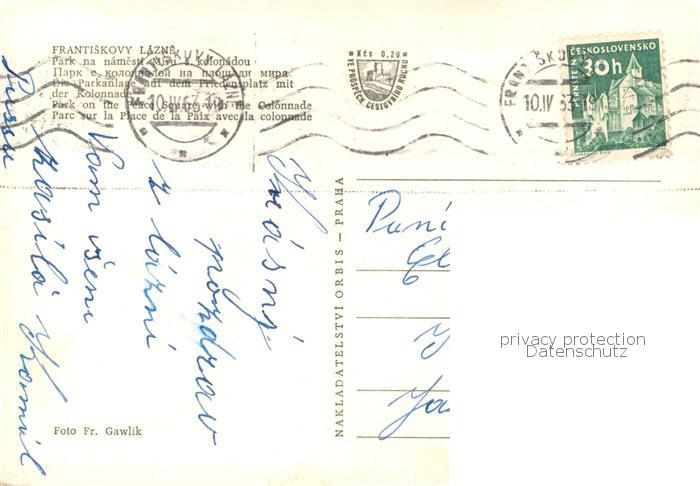 FRANTIŠKOVY LÁZNĚ
Park na náměstí Míru s kolonádou
Парк с колоннадой на площади мира
Die Parkanlage auf dem Friedensplatz mit
der Kolonnade
Park on the Peace Square with the Colonnade
Parc sur la Place de la Paix avec la colonnade
Kčs 0,20
VE PROSPĚCH CESTOVNÍHO RUCHU
FRANTIŠKOVY LÁZNĚ
10.IV
ČESKOSLOVENSKO
30h
Krásný
pozdrav
z lázní
Vám všem
zasílá
NAKLADATELSTVÍ ORBIS — PRAHA
Paní
privacy protection
Datenschutz
Foto Fr. Gawlik